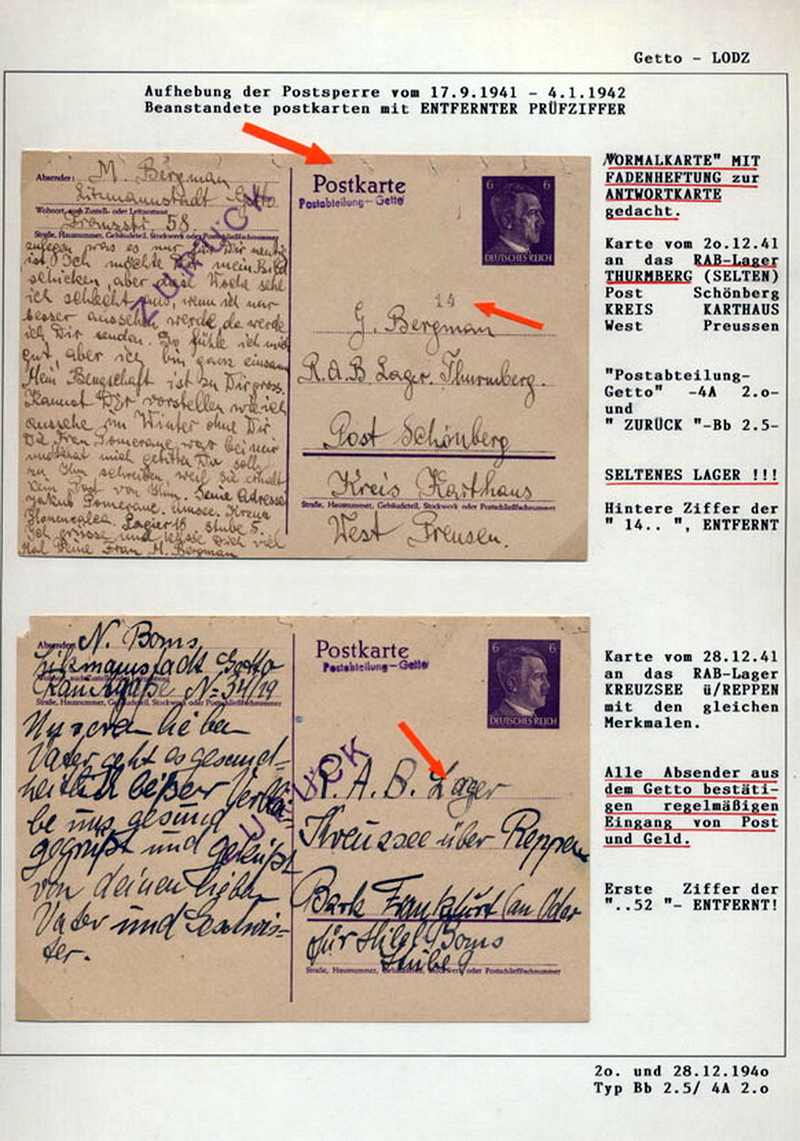 Getto - LODZ
Aufhebung der Postsperre vom 17.9.1941 - 4.1.1942
Beanstandete postkarten mit ENTFERNTER PRÜFZIFFER
Absender: M. Bergman
Litzmannstadt Getto
Wohnort, auch Zustell- oder Leitpostamt
Franzstr. 58.
Straße, Hausnummer, Gebäudeteil, Stockwerk oder Postschließfachnummer
ist. Ich möchte Dir mein Bild
schicken, aber diese Woche sehe
ich schlecht aus, wenn ich nur
besser aussehen werde, da werde
ich Dir senden. So fühle ich mich
gut, aber ich bin ganz einsam
Mein Bengschaft ist zu Dir gross.
Kannst Dir vorstellen wie ich
aussehe im Winter ohne Dir
Die Frau Pomeranc war bei mir
und hat mich gebitten Du sollst
zu Ihm schreiben, weil sie erhält
kein Post von Ihm. Seine Adresse
Jakob Pomeranc.
Lager 18, Stube 5.
Ich grüsse und küsse Dich viel
Mal Deine Frau M. Bergman
ZURÜCK
Postkarte
Postabteilung-Getto
6 6
DEUTSCHES REICH
14
G. Bergman
R.A.B. Lager. Thurmberg.
Post Schönberg
Kreis Karthaus
Straße, Hausnummer, Gebäudeteil, Stockwerk oder Postschließfachnummer
West Preusen.
"NORMALKARTE" MIT
FADENHEFTUNG zur
ANTWORTKARTE
gedacht.
Karte vom 2o.12.41
an das RAB-Lager
THURMBERG (SELTEN)
Post Schönberg
KREIS KARTHAUS
West Preussen
"Postabteilung-
Getto" -4A 2.o-
und
" ZURÜCK "-Bb 2.5-
SELTENES LAGER !!!
Hintere Ziffer der
" 14.. ", ENTFERNT
Absender: N. Boms
Litzmannstadt Getto
N: 34/19
Straße, Hausnummer, Gebäudeteil, Stockwerk oder Postschließfachnummer
lieben
Vater geht es gesund-
heitlich beßer
be uns gesund
gegrüßt und geküsst
von deinen lieben
Vater und Geschwis-
ter.
ZURÜCK
Postkarte
Postabteilung-Getto
6 6
DEUTSCHES REICH
R. A. B. Lager
Kreussee über Reppen
Frankfurt (an Oder
für Hilel Boms
Stube
Straße, Hausnummer, Gebäudeteil, Stockwerk oder Postschließfachnummer
Karte vom 28.12.41
an das RAB-Lager
KREUZSEE ü/REPPEN
mit den gleichen
Merkmalen.
Alle Absender aus
dem Getto bestäti-
gen regelmäßigen
Eingang von Post
und Geld.
Erste Ziffer der
"..52 "- ENTFERNT!
2o. und 28.12.194o
Typ Bb 2.5/ 4A 2.o